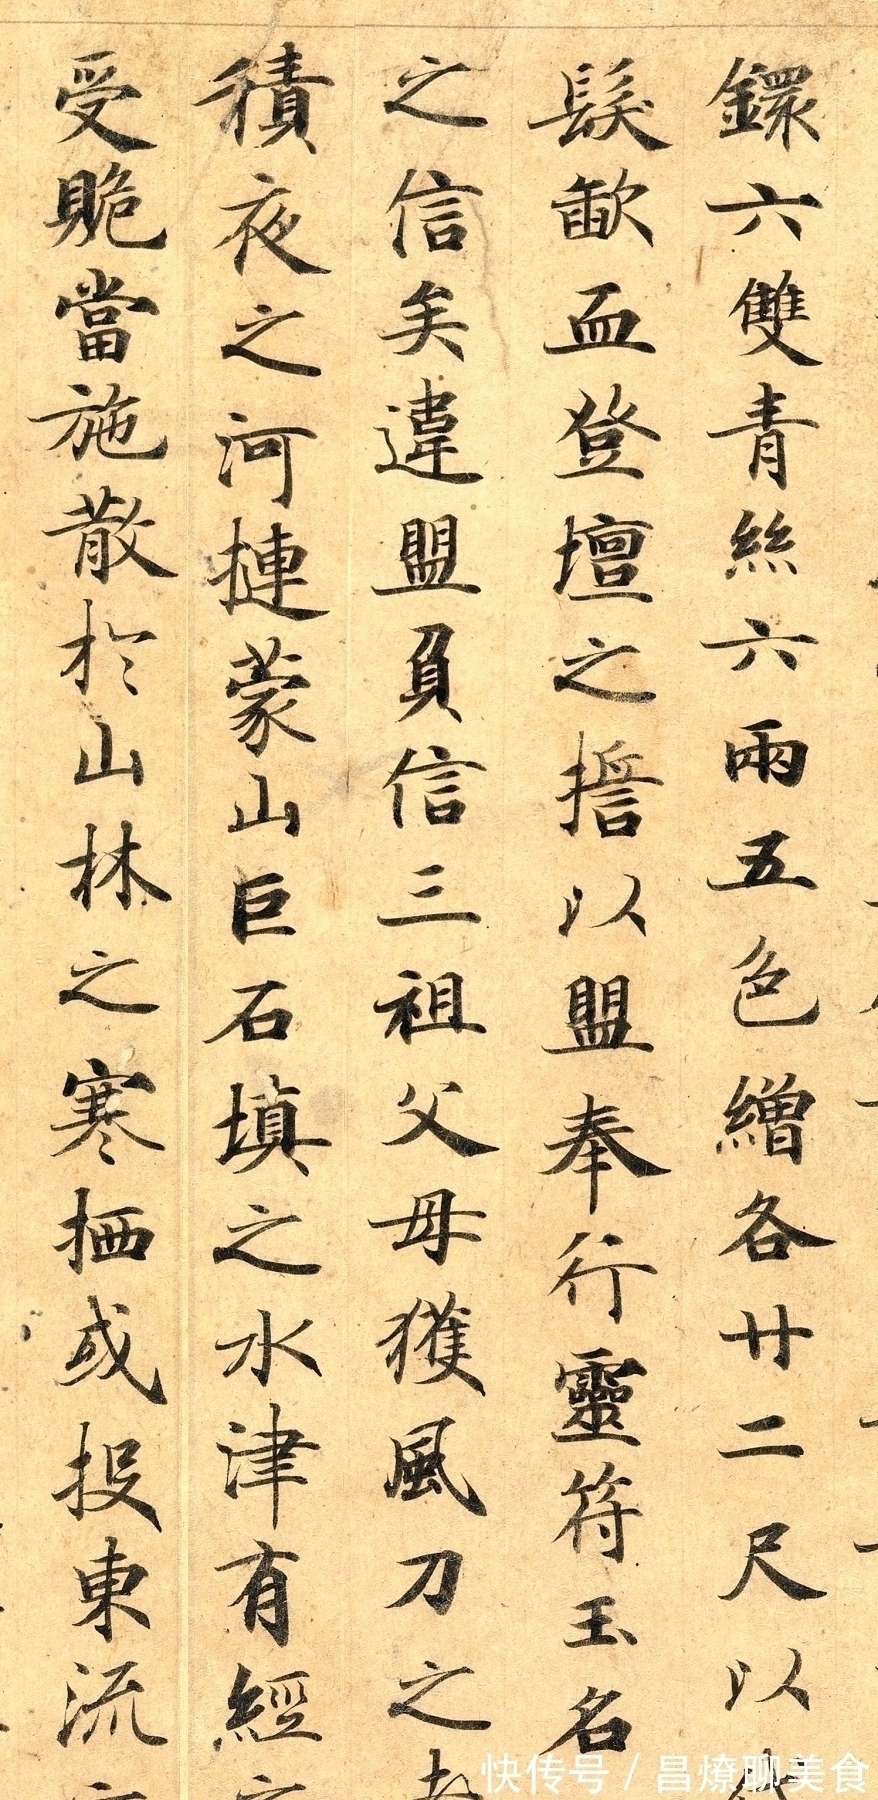 鐶六雙青絲六兩五色繒各廿二尺以
髮歃血登壇之擔以盟奉行靈符玉名
之信矣違盟負信三祖父母獲風刀之
積夜之河摙蒙山巨石填之水津有經
受賍當施散於山林之寒栖或投東流
快传号 / 昌燎聊美食